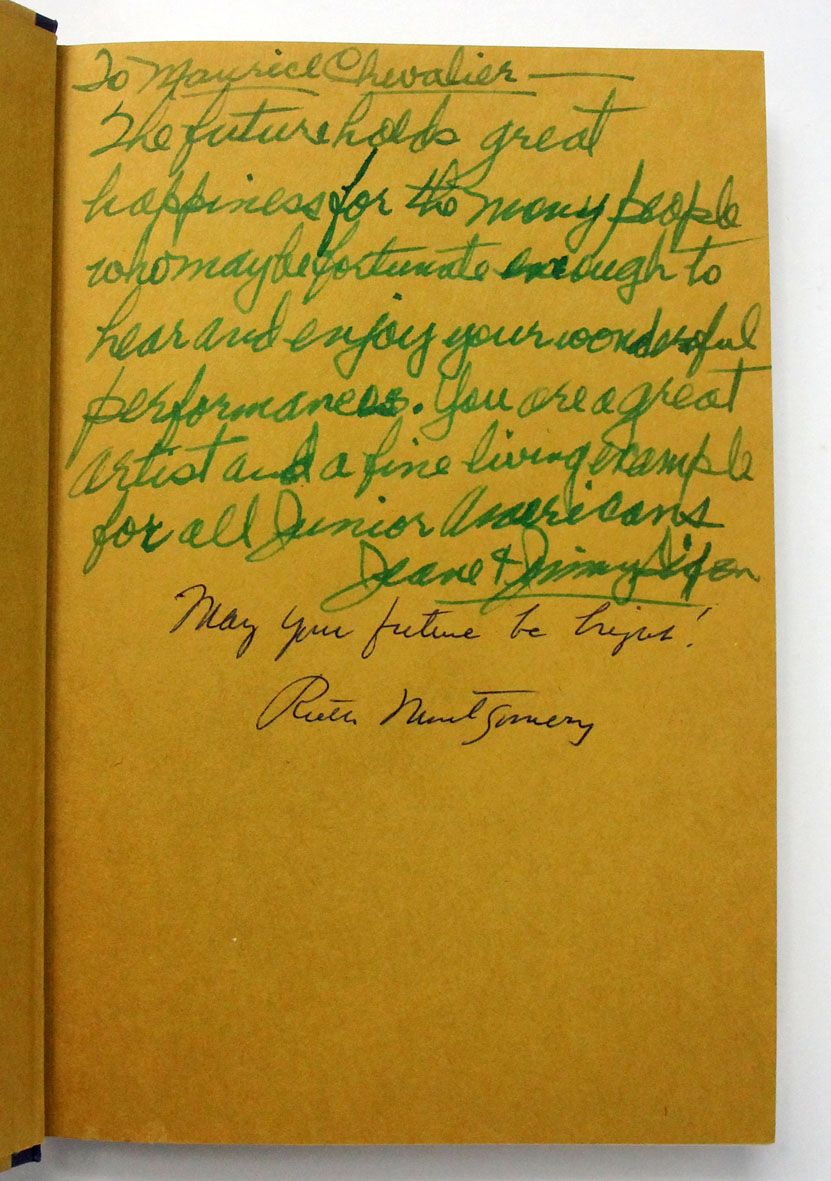 To Maurice Chevalier —
The future holds great
happiness for the many people
who may be fortunate enough to
hear and enjoy your wonderful
performances. You are a great
artist and a fine living example
for all Junior Americans
Jeane & Jimmy
May your future be bright!
Ruth Montgomery